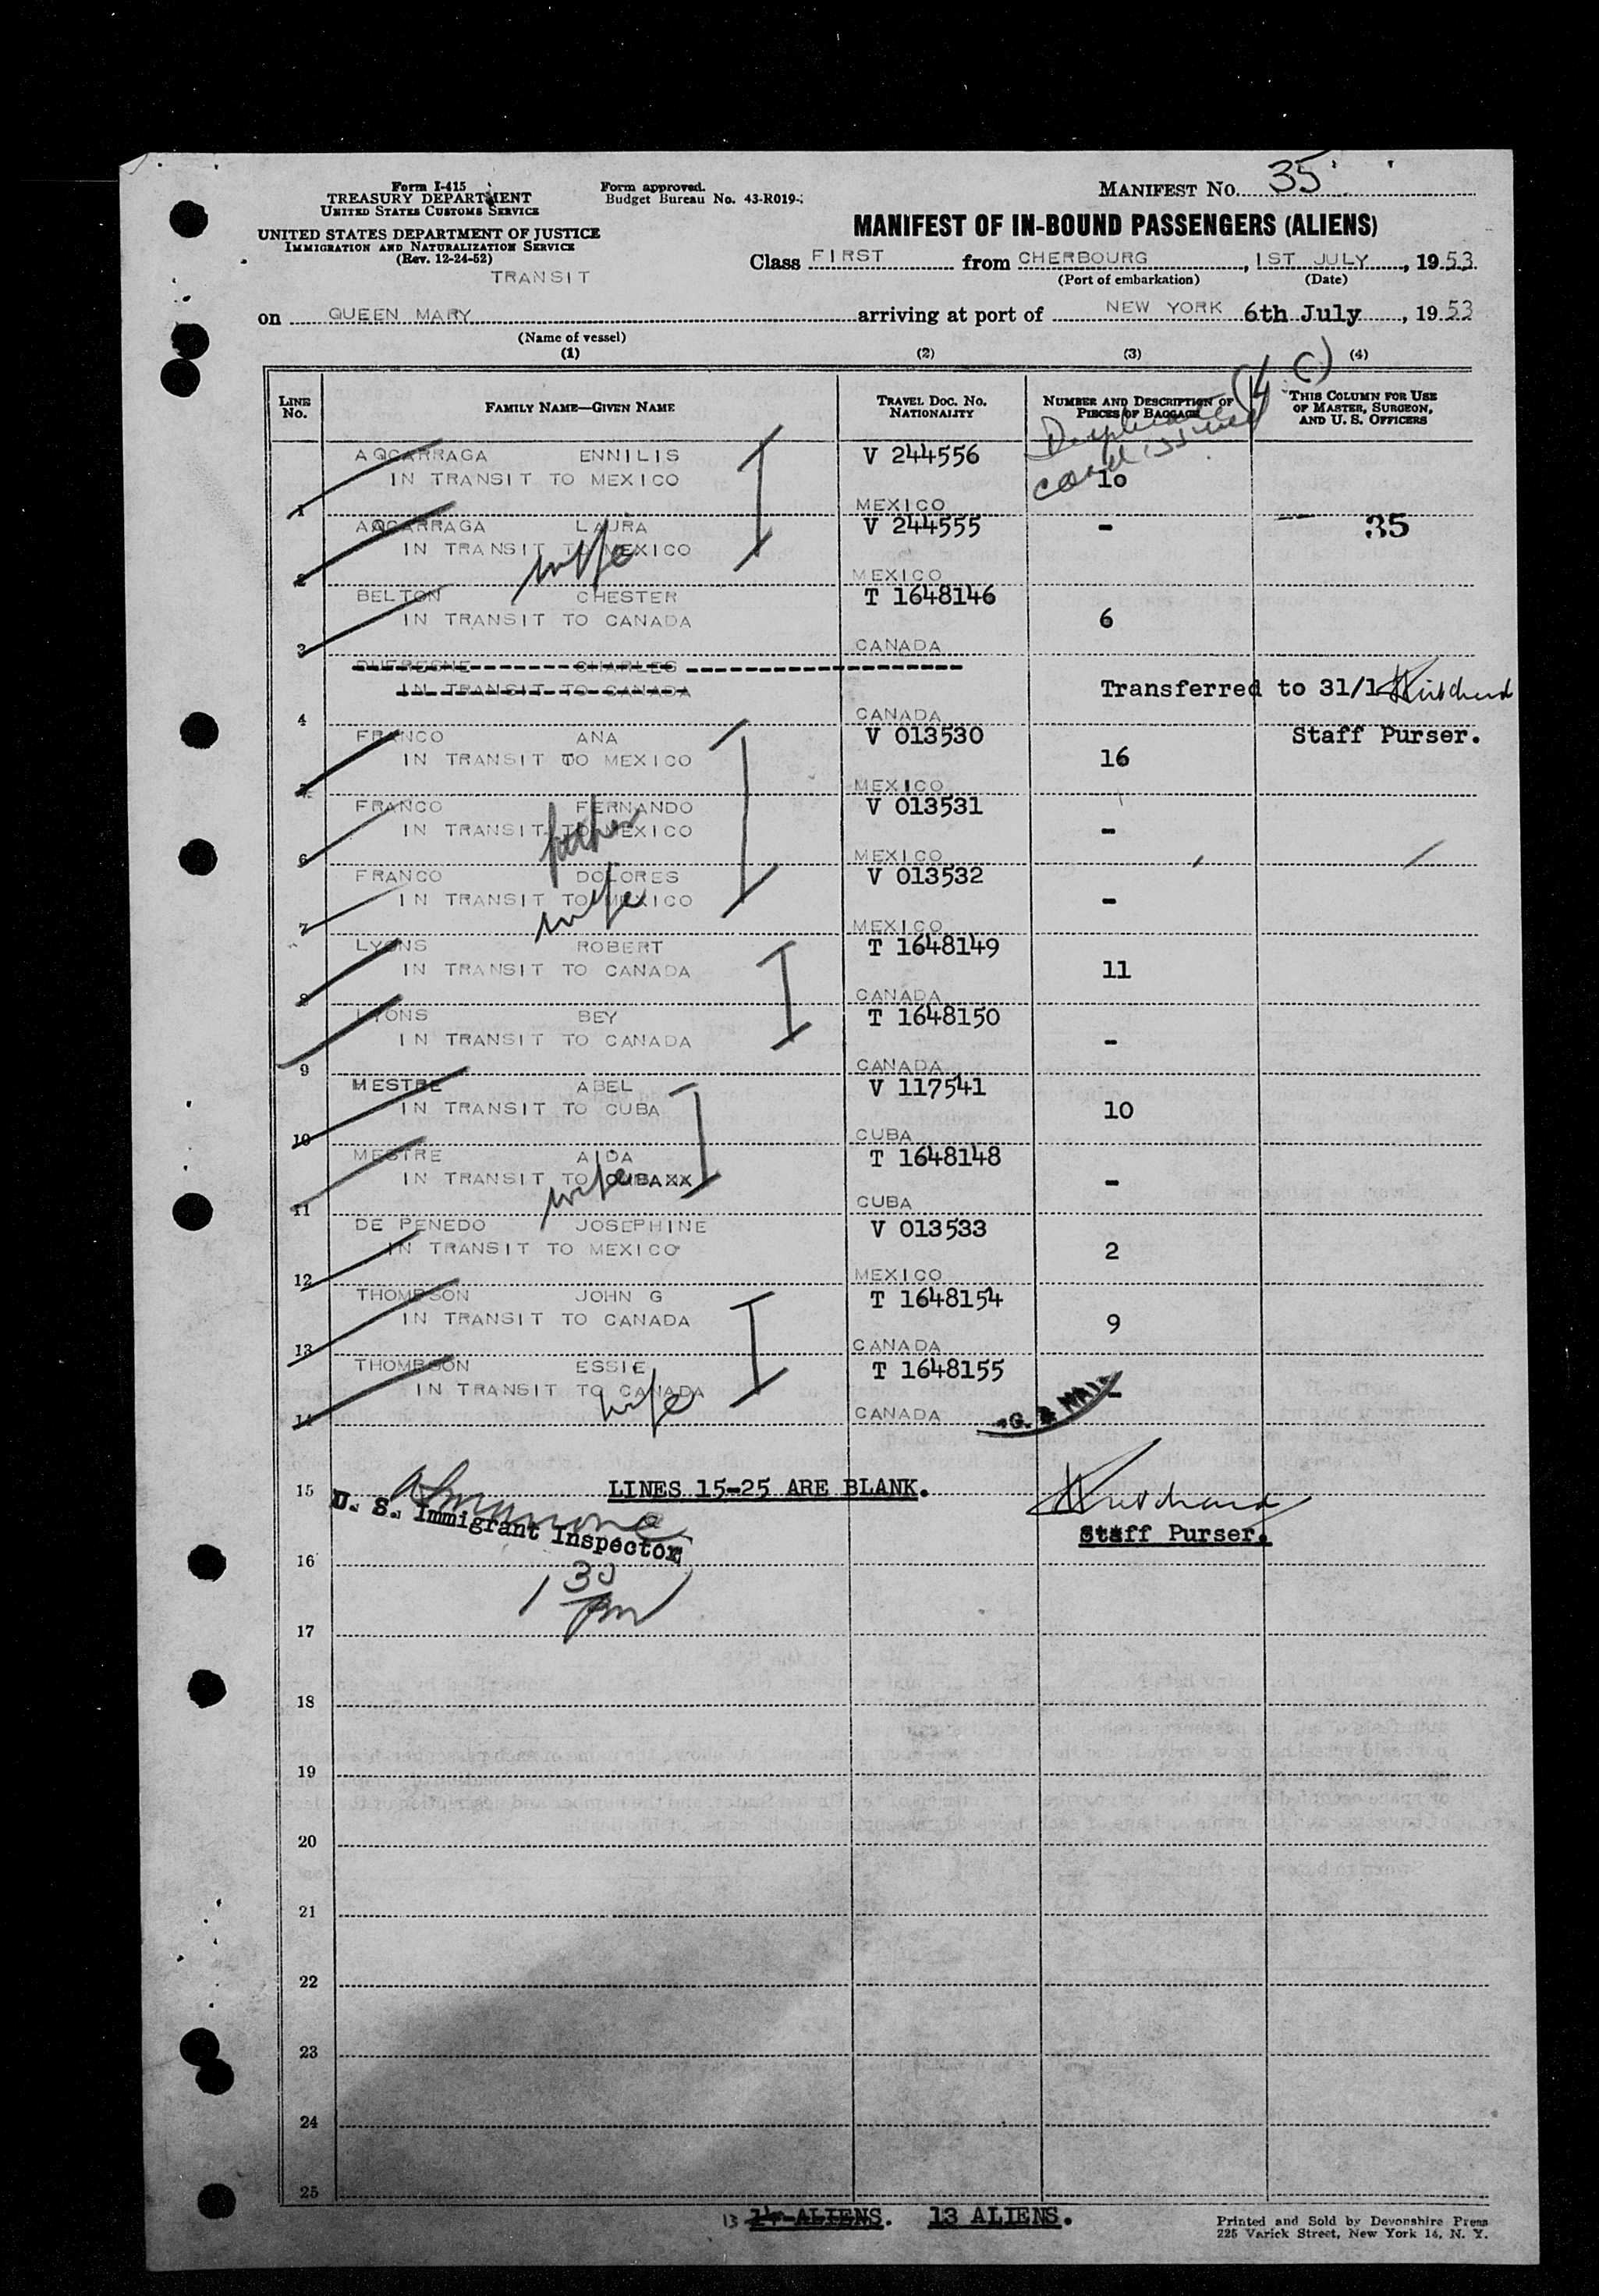 Form I-415
TREASURY DEPARTMENT
UNITED STATES CUSTOMS SERVICE
UNITED STATES DEPARTMENT OF JUSTICE
IMMIGRATION AND NATURALIZATION SERVICE
(Rev. 12-24-52)
TRANSIT
Form approved.
Budget Bureau No. 43-R019-
MANIFEST NO. 35
MANIFEST OF IN-BOUND PASSENGERS (ALIENS)
Class FIRST from CHERBOURG, 1ST JULY, 1953
(Port of embarkation) (Date)
on QUEEN MARY arriving at port of NEW YORK 6th July, 1953
(Name of vessel)
(1) (2) (3) (4)
LINE No. FAMILY NAME—GIVEN NAME TRAVEL DOC. NO. NATIONALITY NUMBER AND DESCRIPTION OF PIECES OF BAGGAGE THIS COLUMN FOR USE OF MASTER, SURGEON, AND U. S. OFFICERS
Duplicate card issued
AQCARRAGA ENNILIS V 244556
IN TRANSIT TO MEXICO 10
1 MEXICO
AQCARRAGA LAURA V 244555 - 35
IN TRANSIT TO MEXICO
wife
2 MEXICO
BELTON CHESTER T 1648146
IN TRANSIT TO CANADA 6
3 CANADA
DUFRESNE CHARLES
IN TRANSIT TO CANADA Transferred to 31/1
4 CANADA
FRANCO ANA V 013530 Staff Purser.
IN TRANSIT TO MEXICO 16
5 MEXICO
FRANCO FERNANDO V 013531
IN TRANSIT TO MEXICO -
father
6 MEXICO
FRANCO DOLORES V 013532
IN TRANSIT TO MEXICO -
wife
7 MEXICO
LYONS ROBERT T 1648149
IN TRANSIT TO CANADA 11
8 CANADA
LYONS BEY T 1648150
IN TRANSIT TO CANADA -
9 CANADA
MESTRE ABEL V 117541
IN TRANSIT TO CUBA 10
10 CUBA
MESTRE AIDA T 1648148
IN TRANSIT TO CUBAXX -
wife
11 CUBA
DE PENEDO JOSEPHINE V 013533
IN TRANSIT TO MEXICO 2
12 MEXICO
THOMPSON JOHN G T 1648154
IN TRANSIT TO CANADA 9
13 CANADA
THOMPSON ESSIE T 1648155
IN TRANSIT TO CANADA -
wife
14 CANADA
15 LINES 15-25 ARE BLANK.
U. S. Immigrant Inspector
Staff Purser.
16
1 30 pm
17
18
19
20
21
22
23
24
25
13 14 ALIENS. 13 ALIENS.
Printed and Sold by Devonshire Press
225 Varick Street, New York 14, N. Y.